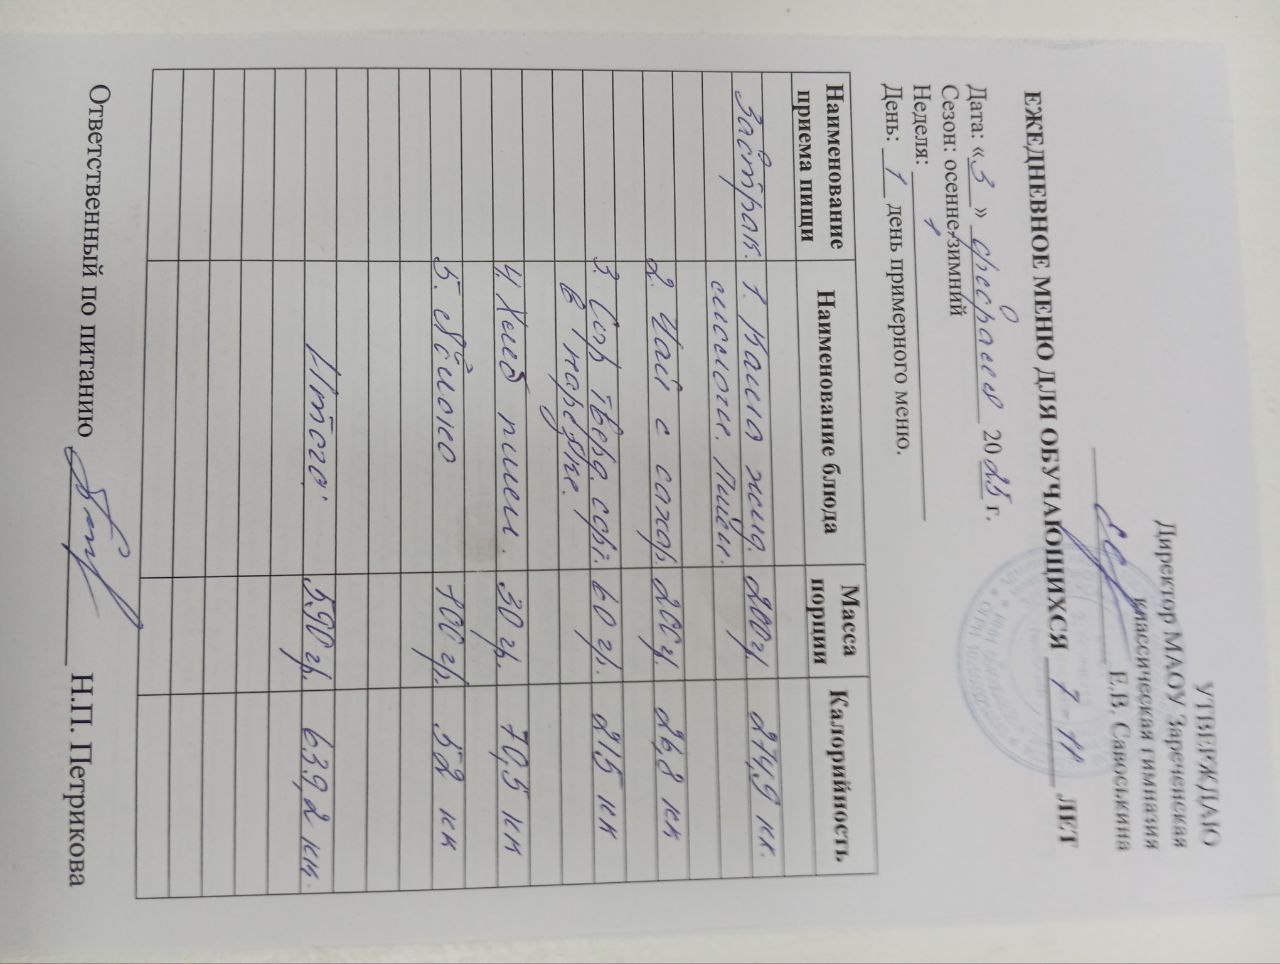 УТВЕРЖДАЮ
Директор МАОУ Зареченская
класическая гимназия
Е.В. Савоськина
ЕЖЕДНЕВНОЕ МЕНЮ ДЛЯ ОБУЧАЮЩИХСЯ 7-11 ЛЕТ
Дата: «3» февраля 2025 г.
Сезон: осенне-зимний
Неделя: 1
День: 1 день примерного меню.
Наименование приема пищи Наименование блюда Масса порции Калорийность
Завтрак. 1. Каша жид. 200г. 274,9 кк.
молочн. Пшён.
2. Чай с сахар. 200г. 26,8 кк
3. Сыр тверд. сорт. 60 гр. 215 кк
в нарезке.
4. Хлеб пшен. 30 гр. 70,5 кк
5. Яблоко 100 гр. 52 кк
Итого: 590 гр. 639,2 кк.
Ответственный по питанию Н.П. Петрикова